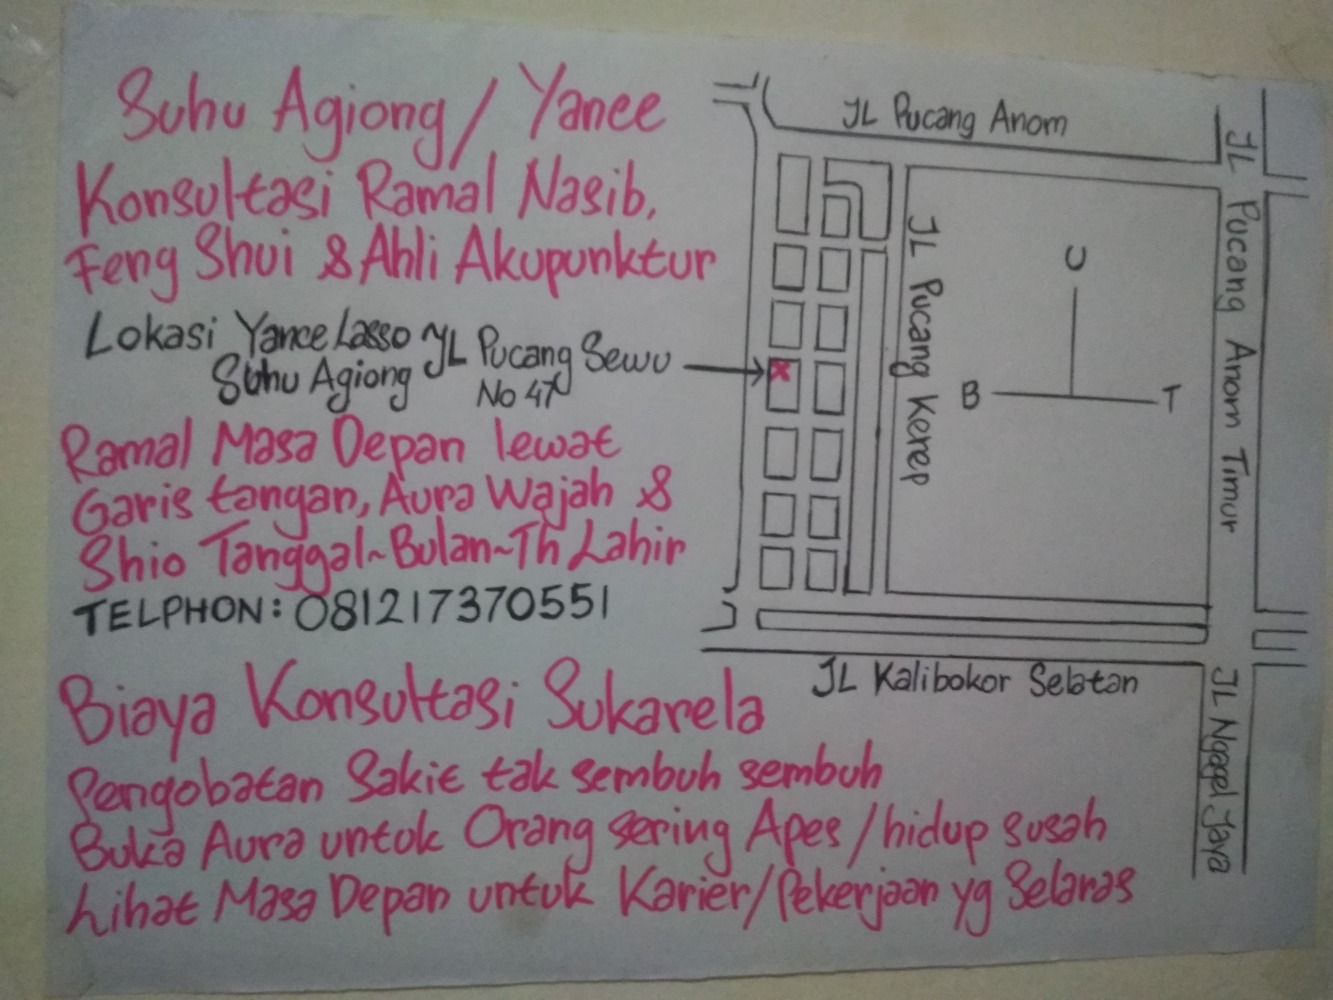 Suhu Agiong / Yance
Konsultasi Ramal Nasib,
Feng Shui & Ahli Akupunktur
Lokasi Yance Lasso JL Pucang Sewu
Suhu Agiong No 47
Ramal Masa Depan lewat
Garis tangan, Aura Wajah &
Shio Tanggal~Bulan~Th Lahir
TELPHON: 081217370551
Biaya Konsultasi Sukarela
Pengobatan Sakit tak sembuh sembuh
Buka Aura untuk Orang sering Apes / hidup susah
Lihat Masa Depan untuk Karier / Pekerjaan yg Selaras
JL Pucang Anom
JL Pucang Anom Timur
JL Pucang Kerep
U
B
T
JL Kalibokor Selatan
JL Ngagel Jaya